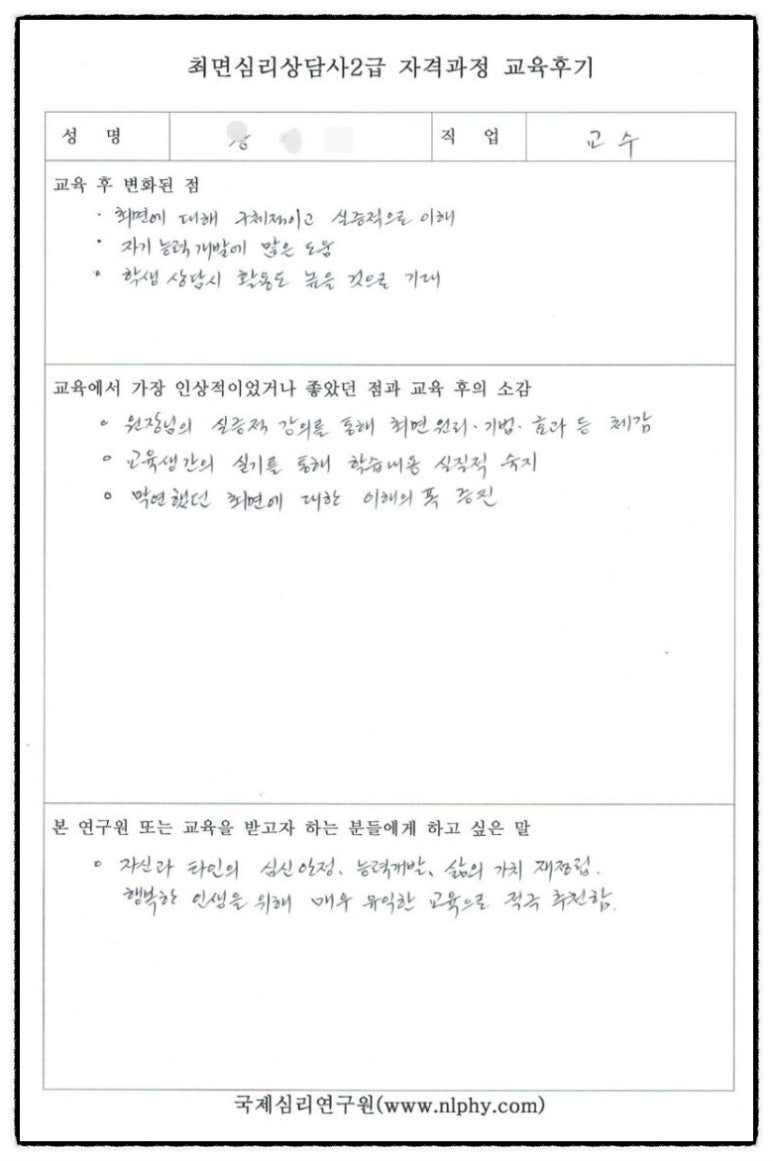 최면심리상담사2급 자격과정 교육후기
성 명 직 업 교수
교육 후 변화된 점
· 최면에 대해 구체적이고 실증적으로 이해
· 자기 능력개발에 많은 도움
· 학생 상담시 활용도 높을 것으로 기대
교육에서 가장 인상적이었거나 좋았던 점과 교육 후의 소감
◦ 원장님의 실증적 강의를 통해 최면 원리·기법·효과 등 체감
◦ 교육생간의 실기를 통해 학습내용 숙지
◦ 막연했던 최면에 대한 이해의 폭 증진
본 연구원 또는 교육을 받고자 하는 분들에게 하고 싶은 말
◦ 자신과 타인의 심신안정, 능력개발, 삶의 가치 재정립.
행복한 인생을 위해 매우 유익한 교육으로 적극 추천함.
국제심리연구원(www.nlphy.com)